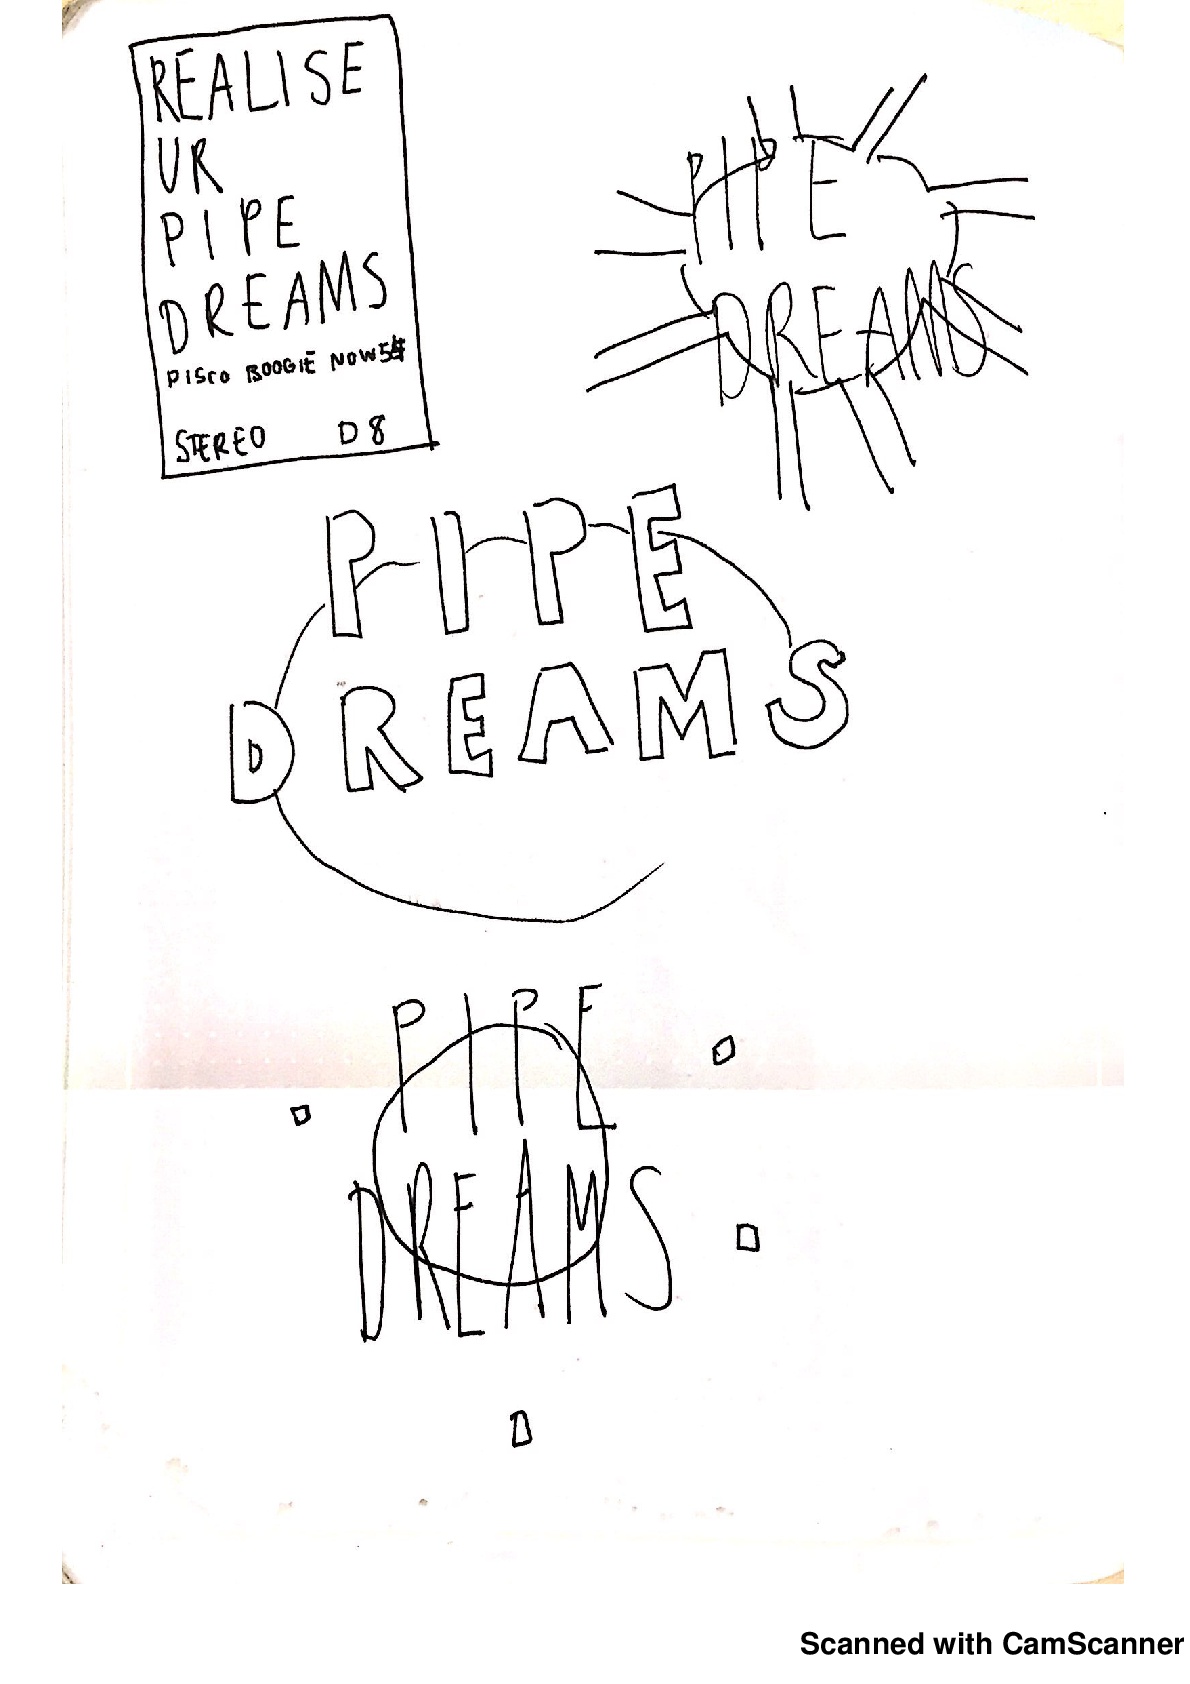 REALISE
UR
PIPE
DREAMS
DISCO BOOGIE NOW
STEREO D8
PIPE
DREAMS
PIPE
DREAMS
PIPE
DREAMS
Scanned with CamScanner